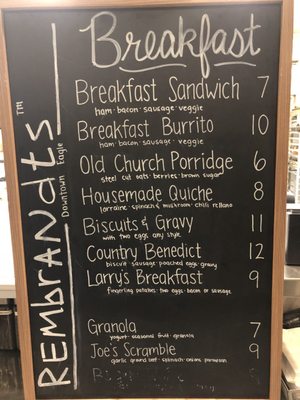 REMBRANDTS™
Downtown Eagle
Breakfast
Breakfast Sandwich 7
ham · bacon · sausage · veggie
Breakfast Burrito 10
ham · bacon · sausage · veggie
Old Church Porridge 6
steel cut oats · berries · brown sugar
Housemade Quiche 8
lorraine · spinach & mushroom · chili rellano
Biscuits & Gravy 11
with two eggs any style
Country Benedict 12
biscuit · sausage · poached eggs · gravy
Larry's Breakfast 9
fingerling potatoes · two eggs · bacon or sausage
Granola 7
yogurt · seasonal fruit · granola
Joe's Scramble 9
garlic ground beef · spinach · onions · parmesan